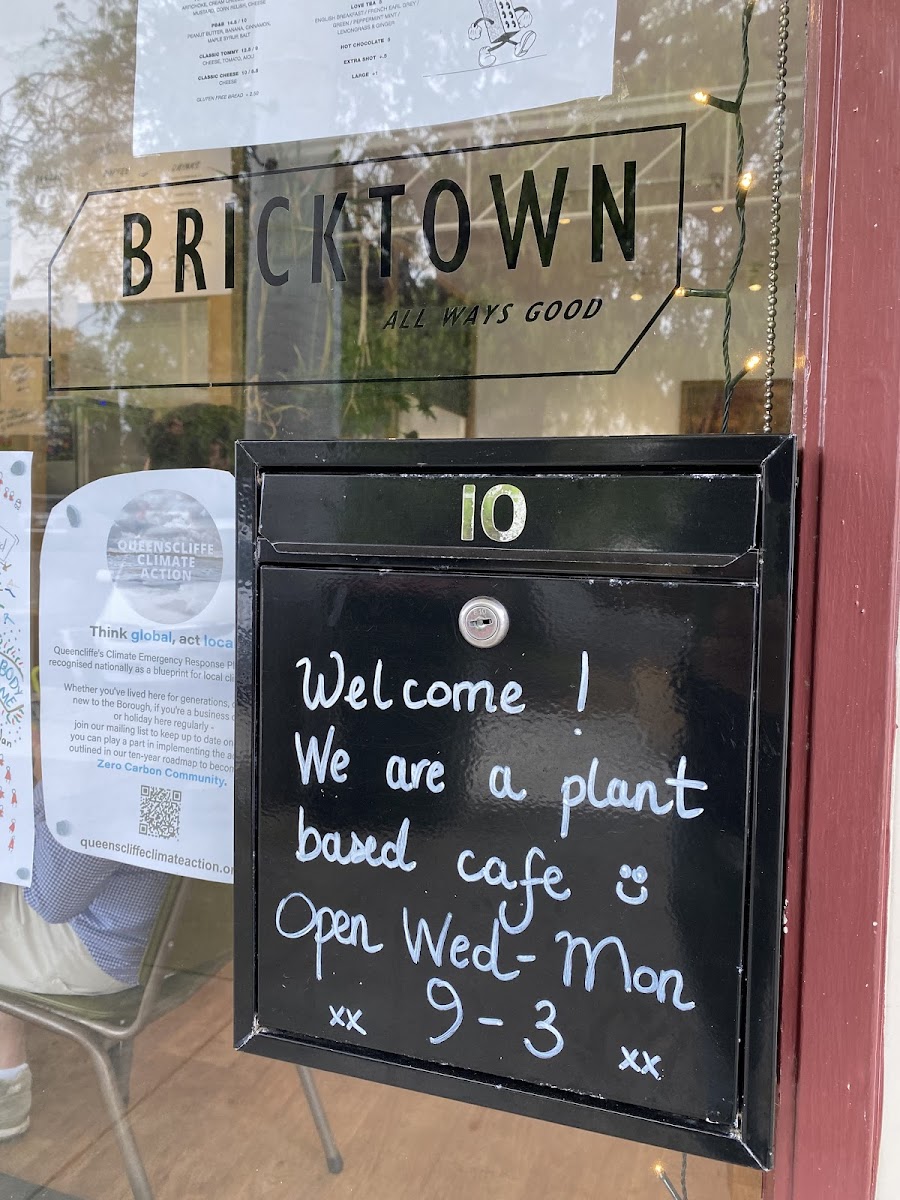 ARTICHOKE, CREAM CHEESE
MUSTARD, CORN RELISH, CHEESE
PBAB 14.5 / 10
PEANUT BUTTER, BANANA, CINNAMON,
MAPLE SYRUP, SALT
CLASSIC TOMMY
CHEESE, TOMATO, AIOLI
CLASSIC CHEESE
CHEESE
GLUTEN FREE BREAD
LOVE TEA 5
ENGLISH BREAKFAST / FRENCH EARL GREY /
GREEN / PEPPERMINT MINT /
LEMONGRASS & GINGER
HOT CHOCOLATE
EXTRA SHOT +.5
LARGE +1
BRICKTOWN
ALL WAYS GOOD
QUEENSCLIFFE
CLIMATE
ACTION
Think global, act loca
Queencliffe's Climate Emergency Response Pl
recognised nationally as a blueprint for local cli
Whether you've lived here for generations,
new to the Borough, if you're a business
or holiday here regularly -
join our mailing list to keep up to date on
you can play a part in implementing the a
outlined in our ten-year roadmap to becom
Zero Carbon Community.
queenscliffeclimateaction.or
BODY
10
Welcome !
We are a plant
based cafe
Open Wed - Mon
9 - 3
xx xx